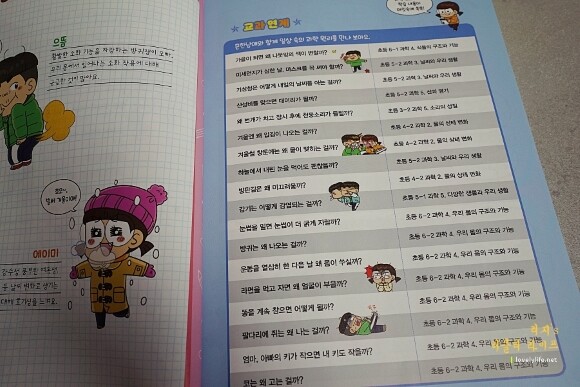 으뜸
왕성한 소화 기능을 자랑하는 방귀쟁이 오빠.
우리 몸에서 일어나는 소화 작용에 대해
궁금한 점이 많아요.
에이미
감수성 풍부한 여동생.
교과연계
흔한남매와 함께 일상 속의 과학 원리를 만나 보아요.
가을이 되면 왜 나뭇잎의 색이 변할까? 초등 6-1 과학 4. 식물의 구조와 기능
미세먼지가 심한 날, 마스크를 꼭 써야 할까? 초등 5-2 과학 3. 날씨와 우리 생활
기상청은 어떻게 내일의 날씨를 아는 걸까? 초등 5-2 과학 3. 날씨와 우리 생활
산성비를 맞으면 대머리가 될까? 초등 5-2 과학 5. 산과 염기
왜 번개가 치고 잠시 후에 천둥소리가 들릴까? 초등 3-2 과학 5. 소리의 성질
겨울엔 왜 입김이 나오는 걸까? 초등 4-2 과학 2. 물의 상태 변화
겨울철 창문에는 왜 물이 맺히는 걸까? 초등 4-2 과학 2. 물의 상태 변화
하늘에서 내린 눈을 먹어도 괜찮을까? 초등 5-2 과학 3. 날씨와 우리 생활
빙판길은 왜 미끄러울까? 초등 4-2 과학 2. 물의 상태 변화
감기는 어떻게 감염되는 걸까? 초등 5-1 과학 5. 다양한 생물과 우리 생활
눈썹을 밀면 눈썹이 더 굵게 자랄까? 초등 6-2 과학 4. 우리 몸의 구조와 기능
방귀는 왜 나오는 걸까? 초등 6-2 과학 4. 우리 몸의 구조와 기능
운동을 열심히 한 다음 날 왜 몸이 쑤실까? 초등 6-2 과학 4. 우리 몸의 구조와 기능
라면을 먹고 자면 왜 얼굴이 부을까? 초등 6-2 과학 4. 우리 몸의 구조와 기능
똥을 계속 참으면 어떻게 될까? 초등 6-2 과학 4. 우리 몸의 구조와 기능
팔다리에 쥐는 왜 나는 걸까? 초등 6-2 과학 4. 우리 몸의 구조와 기능
엄마, 아빠의 키가 작으면 내 키도 작을까? 초등 6-2 과학 4. 우리 몸의 구조와 기능
코는 왜 고는 걸까? 초등 6-2 과학 4. 우리 몸의 구조와 기능
lovelylife.net